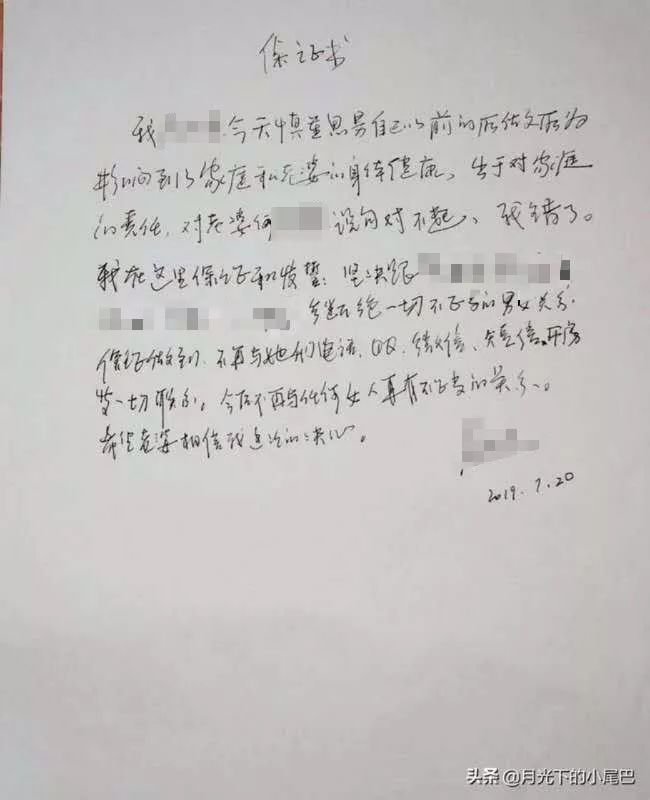 保证书
我 今天慎重思考自己以前的所做所为
影响到了家庭和老婆的身体健康,出于对家庭
的责任,对老婆何 说句对不起、我错了。
我在这里保证和发誓:坚决跟
断绝一切不正当的男女关系.
保证做到,不再与她们电话、QQ、微信、短信、开房
等一切联系。今后不再与任何女人再有不正当的关系。
希望老婆相信我这次的决心。
2019.7.20
头条 @月光下的小尾巴